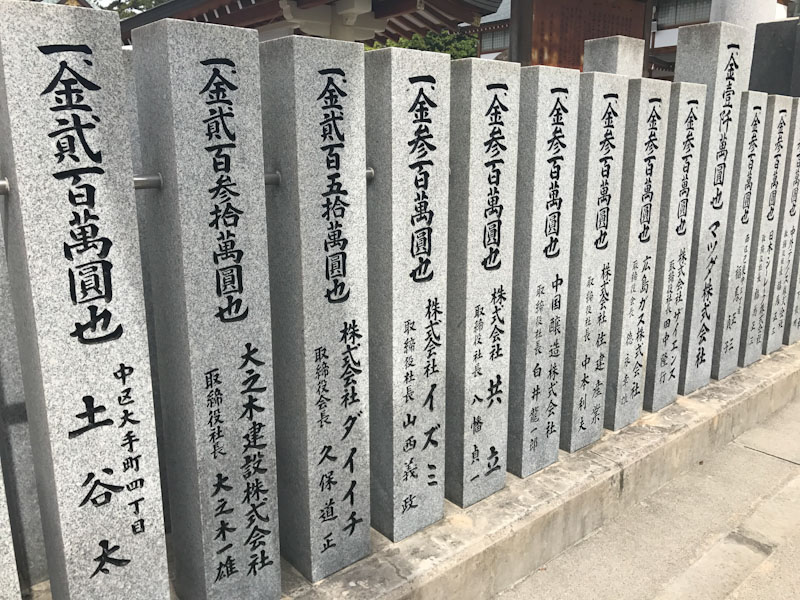 一金貳百萬圓也
中区大手町四丁目
土谷太
一金貳百参拾萬圓也
大之木建設株式会社
取締役社長 大之木一雄
一金貳百五拾萬圓也
株式会社ダイイチ
取締役会長 久保道正
一金参百萬圓也
株式会社イズミ
取締役社長 山西義政
一金参百萬圓也
株式会社共立
取締役社長 八幡貞一
一金参百萬圓也
中国醸造株式会社
取締役社長 白井龍一郎
一金参百萬圓也
株式会社佐建産業
取締役社長 中本利夫
一金参百萬圓也
広島ガス株式会社
取締役会長
一金参百萬圓也
株式会社サイエンス
取締役社長 田中隆行
一金壹阡萬圓也
マツダ株式会社
一金参百萬圓也
一金参百萬圓也
一金参百萬圓也